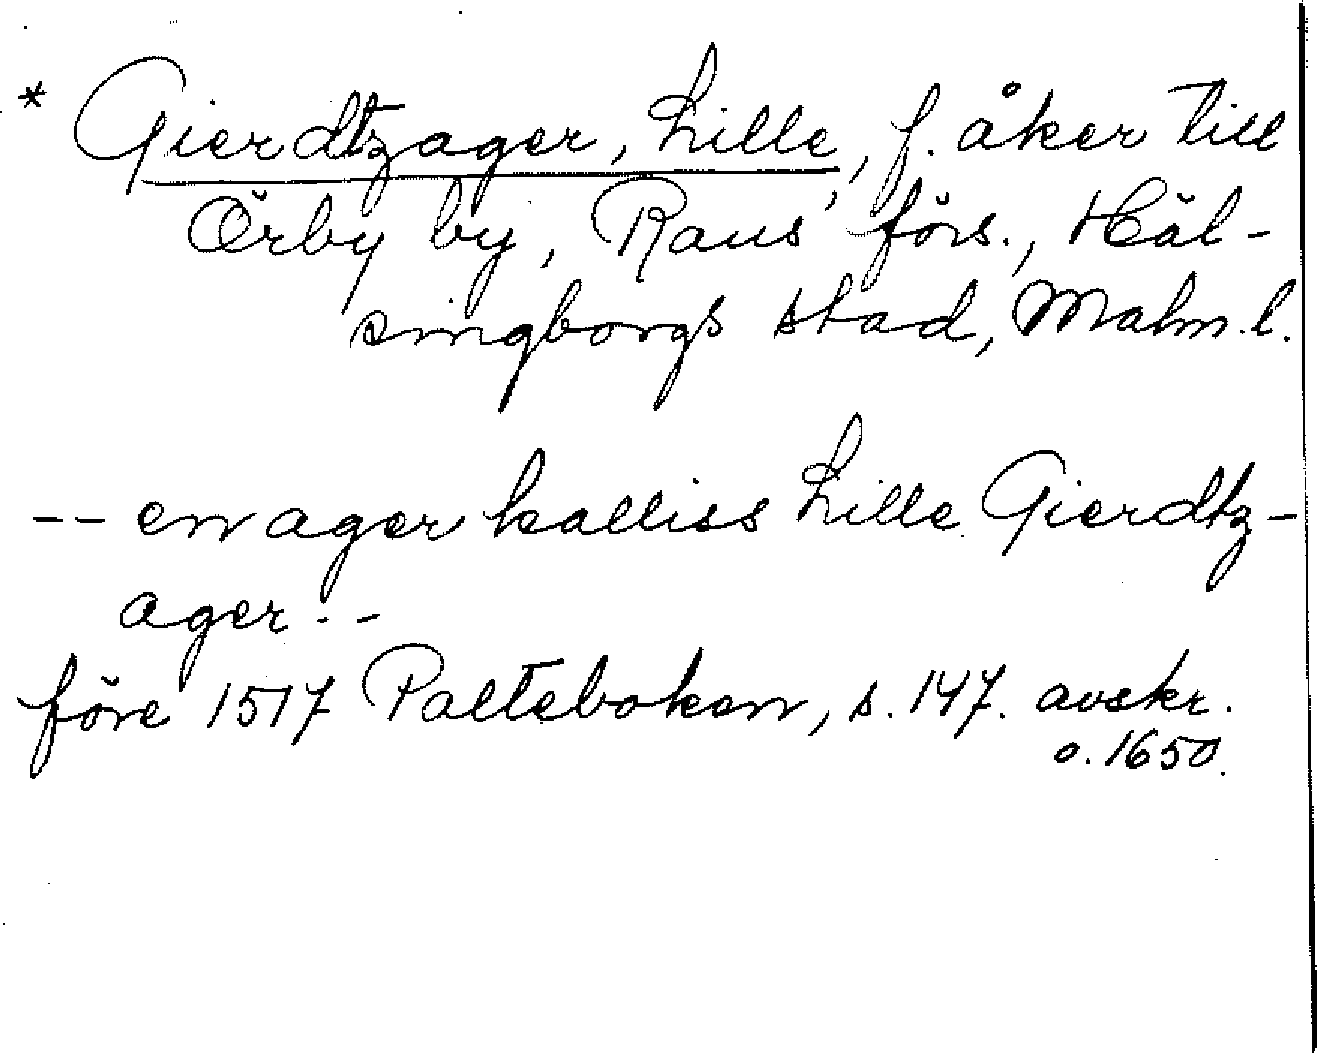 * Gierdtzager, Lille, f. åker till
Örby by, Raus' förs., Häl-
singborgs stad, Malm. l.
-- en ager kalliss Lille Gierdtz-
ager --
före 1517 Palteboken, s. 147. avskr.
o. 1650.